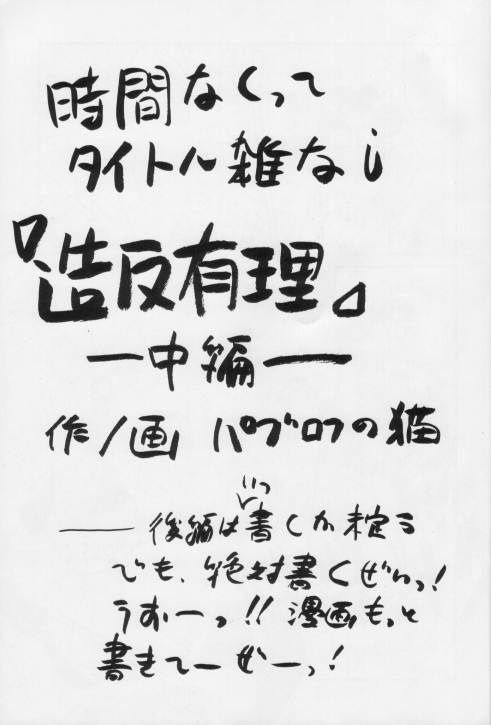 時間なくって
タイトル雑な
『造反有理』
ー中編ー
作/画 パブロフの猫
いつ
―― 後編は書くか未定
でも、絶対書くぜいっ!
うおーっ!! 漫画もっと
書きてーぜーっ!